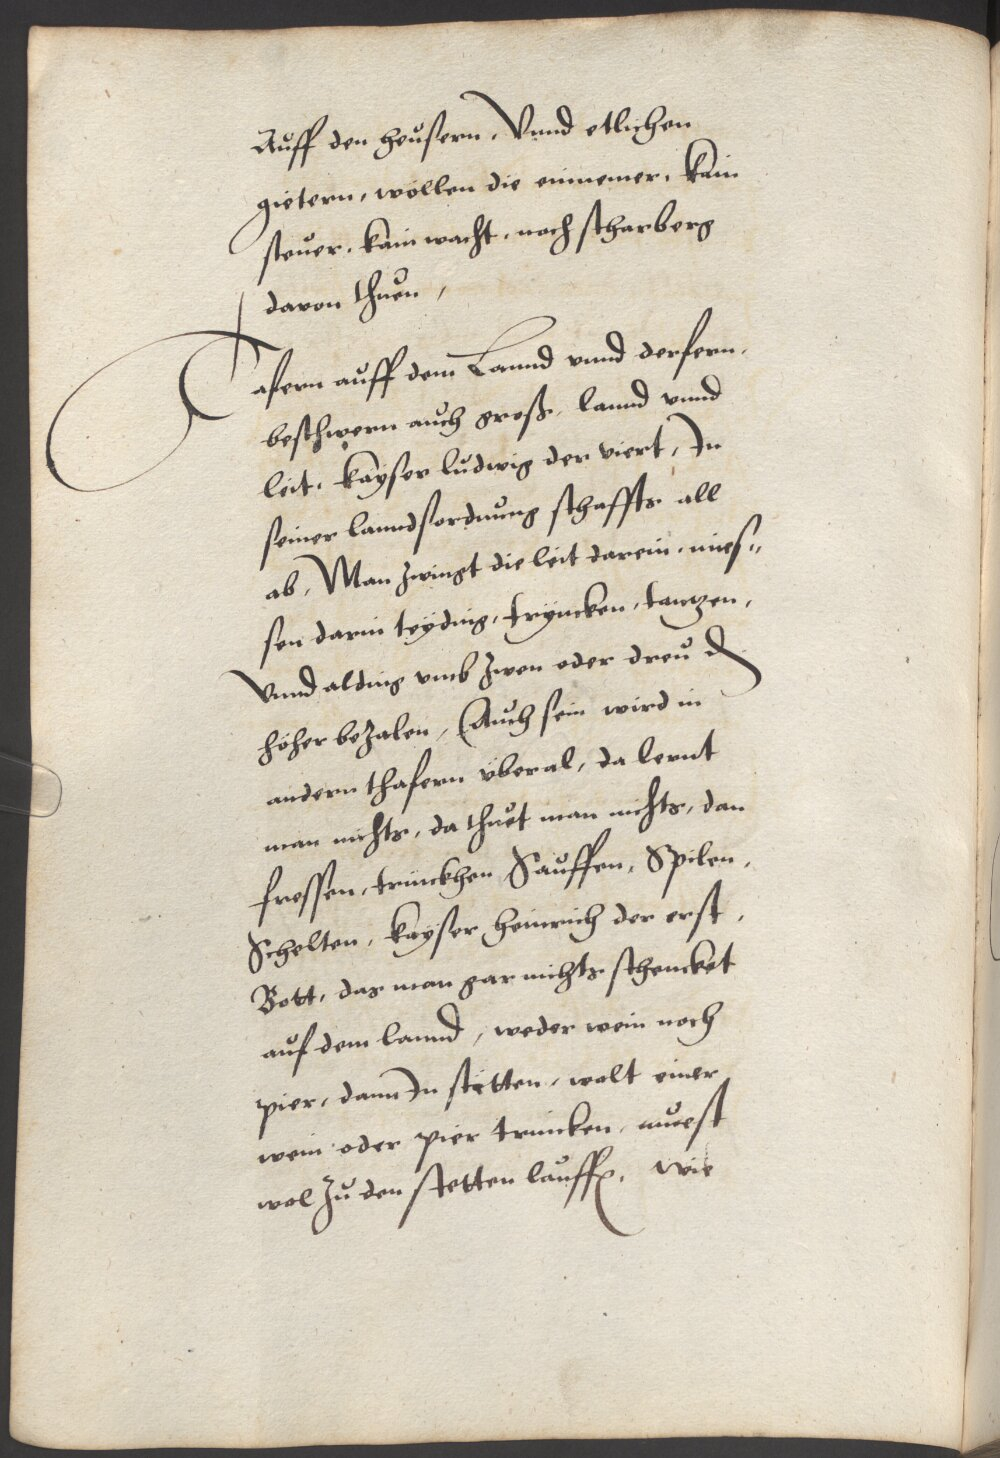 Auff den heüsern, Vnnd etlichen
gietern, wöllen die einnemer, kain
steüer, kain wacht, noch scharberg
davon thuen,
Tafern auff dem Lannd vnnd derfern,
beschwern auch groß, lannd vnnd
leit, kayser ludwig der viert, In
seiner lanndsordnung schaffts all
ab, Man zwingt die leit darein, mies-
sen darin teyding, tryncken, tantzen,
Vnnd alding vmb zwen oder dreü ₰
höher bezalen, (Auch sein wird in
andern thafern überal, da lernt
man nichts, da thuet man nichts, dan
fressen, trinckhen Sauffen, Spilen,
Schelten, kayser heinrich der erst,
Bott, das man gar nichts schencket
auf dem lannd, weder wein noch
pier, dann In stetten, wolt einer
wein oder pier trincken, muest
wol zu den stetten lauffen, wie